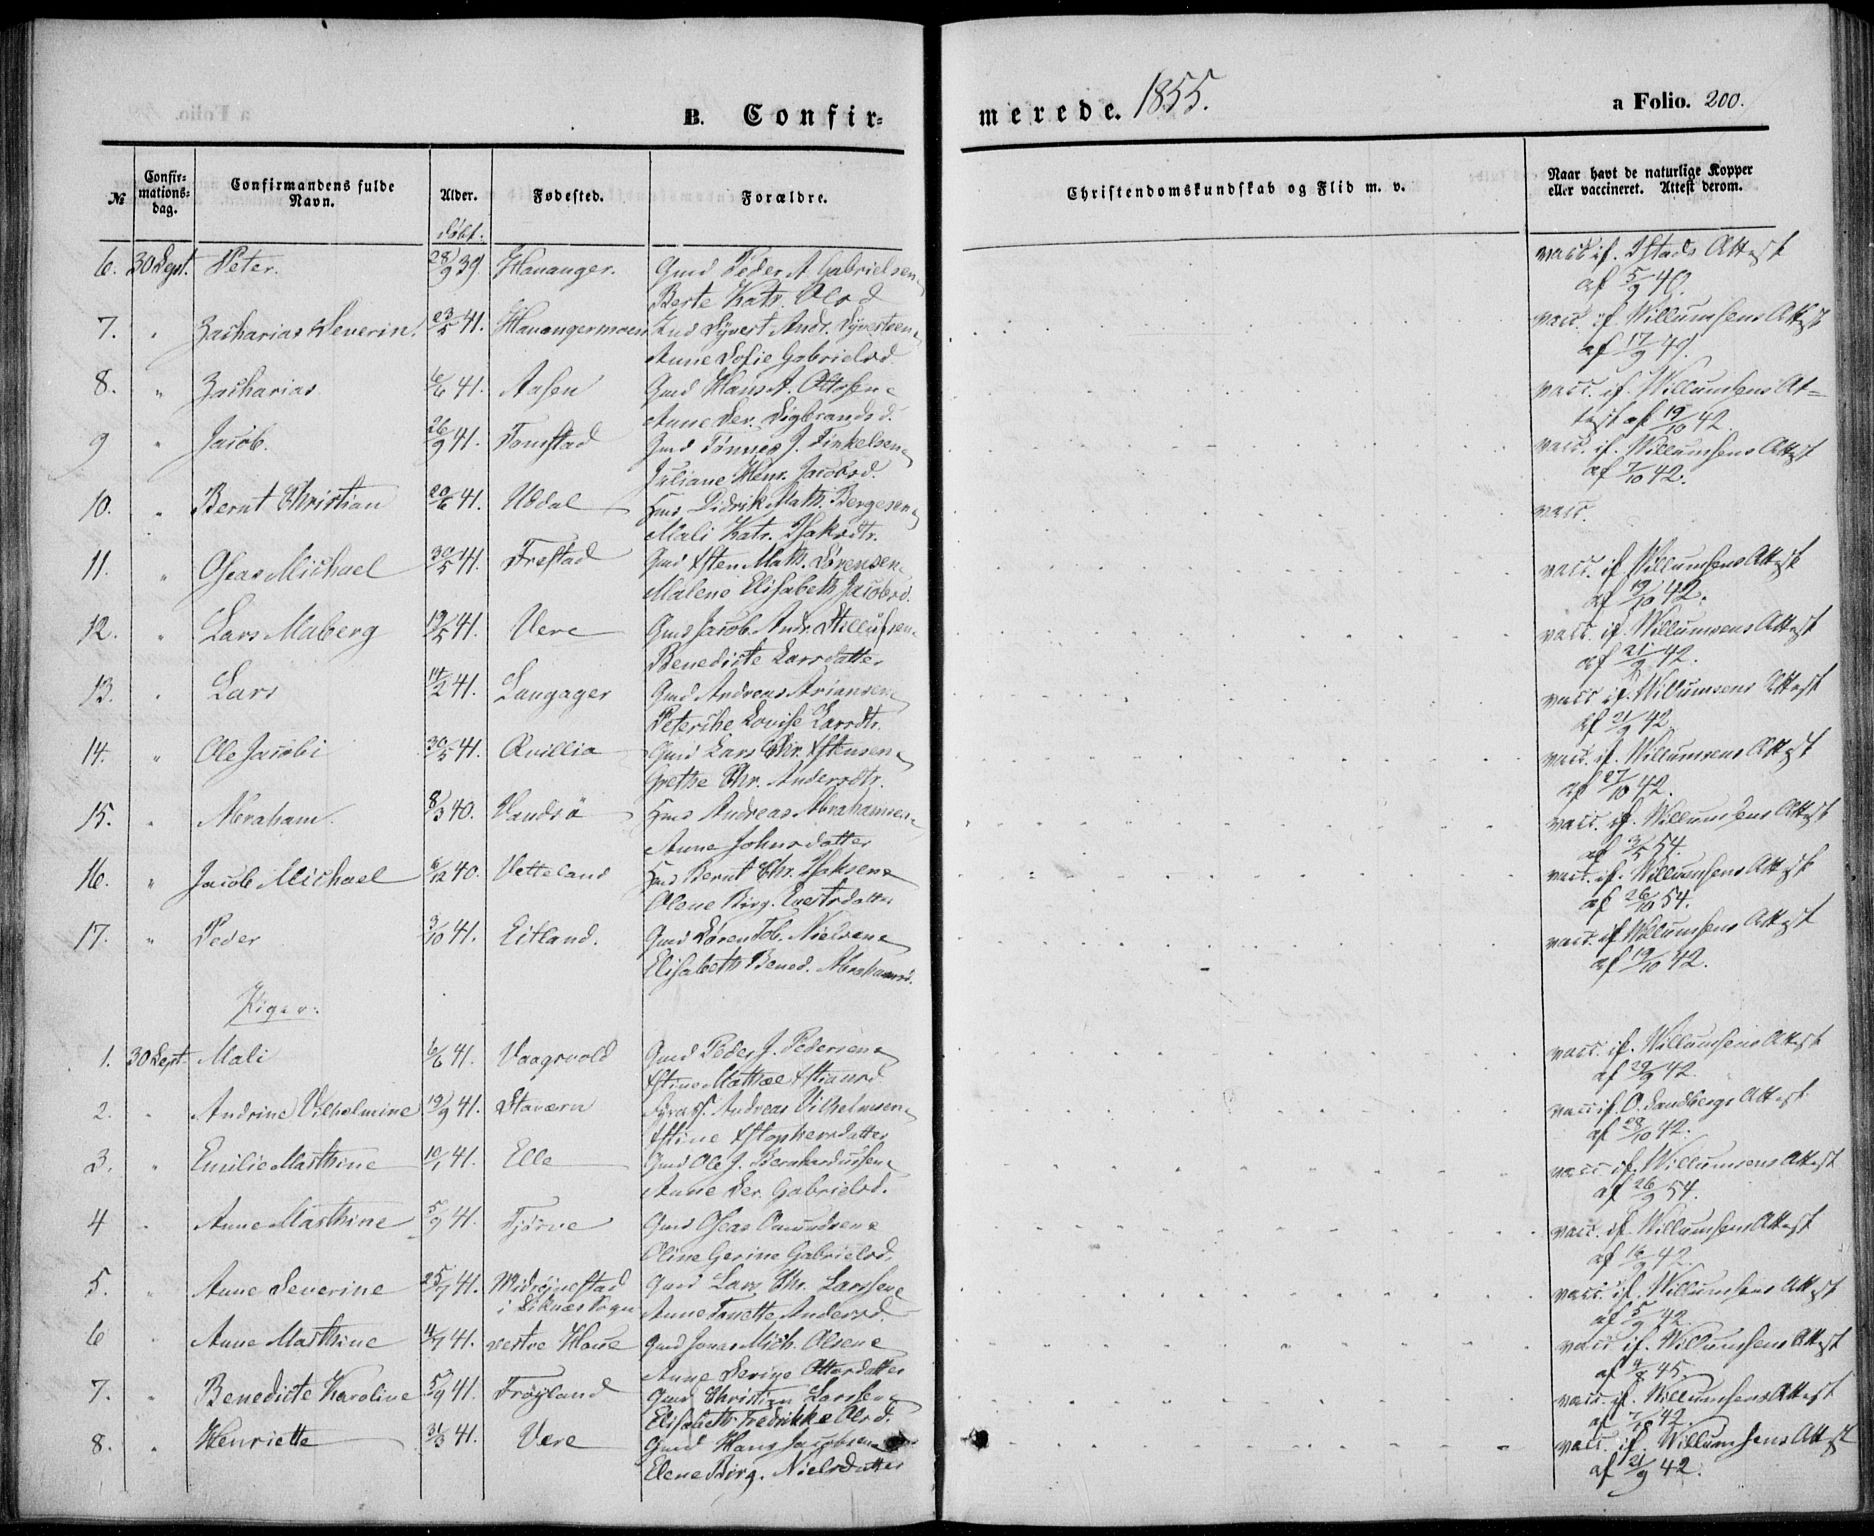 B. Confir-
merede. 1855.
a Folio. 200.
№
Confir-
mations-
dag.
Confirmandens fulde
Navn.
Alder.
Fødested.
Forældre.
Christendomskundskab og Flid m. v.
Naar havt de naturlige Kopper
eller vaccineret. Attest derom.
døbt.
6. 30 Sept. Peter. 28/9 39. Hananger. Gmd Peder A. Gabrielsen vacc. if. Istads Attest
Berte Katr. Olsd af 5/9 40.
7. " Zacharias Severin. 23/5 41. Hanangermoen Syvert Andr. Syvertsen vacc. if. Willumsens Attest
Anne Sofie Gabrielsd af 17/9
8. " Zacharias 6/6 41. Aasen Gmd Hans A. Ottosen vacc. if. Willumsens At-
Anne Ser. Sigbrandsd. test af 19/10 42.
9 " Jacob. 26/9 41. Tomstad Gmd Tønnes J. Tinkelsen vacc. if. Willumsens Attest
Juliane Henr. Jacobsd. af 7/10 42.
10. " Bernt Christian 20/6 41. Uddal Didrik Math. Bergesen vacc.
Mali Katr. Isaksdtr.
11. " Oseas Michael 30/5 41. Frestad Gmd Math. Sørensen vacc. if. Willumsens Attest
Malene Elisabeth Jacobsd. af 19/10 42.
12. " Lars Maberg 19/5 41. Vere Gmd Jacob Andr. vacc. if. Willumsens Attest
Benedicte Larsdatter af 21/9 42.
13. " Lars 14/2 41. Langager Gmd Andreas Ariansen vacc. if. Willumsens Attest
Louise Larsdtr. af 21/9 42.
14. " Ole Jacobi 30/5 41. Qvillia Gmd Lars Chr. vacc. if. Willumsens Attest
Grethe Chr. Andersdtr. af 27/10 42.
15. " Abraham. 8/3 40. Vandsø Andreas Abrahamsen vacc. if. Willumsens Attest
Anne Johnsdatter af 3/5 54.
16. " Jacob Michael 6/12 40. Vetteland Bernt Chr. Isaksen vacc. if. Willumsens Attest
Olene Birg. Evertsdatter af 26/10 54.
17. " Peder 3/10 41. Eitland. Gmd Søren Tob. Nielsen vacc. if. Willumsens Attest
Elisabeth Bened. Abrahamsd. af 19/10 42.
Piger:
1. 30 Sept. Mali 6/6 41. Vaagsvold Gmd Peder J. Pedersen vacc. if. Willumsens Attest
Mathea af 29/9 42.
2. " Andrine Vilhelmine 19/9 41. Stavern Andreas Vilhelmsen vacc. if. O. Sandbergs Attest
af 28/10 42.
3. " Emilie Marthine 10/1 41. Elle Gmd Ole J. Bernhardussen vacc. if. Willumsens Attest
Anne Ser. Gabrielsd. af 26/9 54.
4 " Anne Marthine 5/9 41. Tjørve Gmd Oseas Omundsen vacc. if. Willumsens Attest
Oline Gerine Gabrielsd. af 16/9 42.
5. " Anne Severine 25/7 41. Gmd Lars Chr. Larssen vacc. if. Willumsens Attest
i Sogn Anne Tonette Andersd. af 5/9 42.
6 " Anne Marthine 4/7 41. vestre Haue Gmd Jonas Mich. Olsen vacc. if. Willumsens Attest
Anne Serine Ottosdatter af 9/8 45.
7. " Benedicte Karoline 5/9 41. Frøyland Gmd Christian Larssen vacc. if. Willumsens Attest
Elisabeth Fredrikke Olsd. af 7/10 42.
8. " Henriette 31/3 41. Vere Gmd Hans Jacobsen vacc. if. Willumsens Attest
Elene Børg. Nielsdatter af 21/9 42.